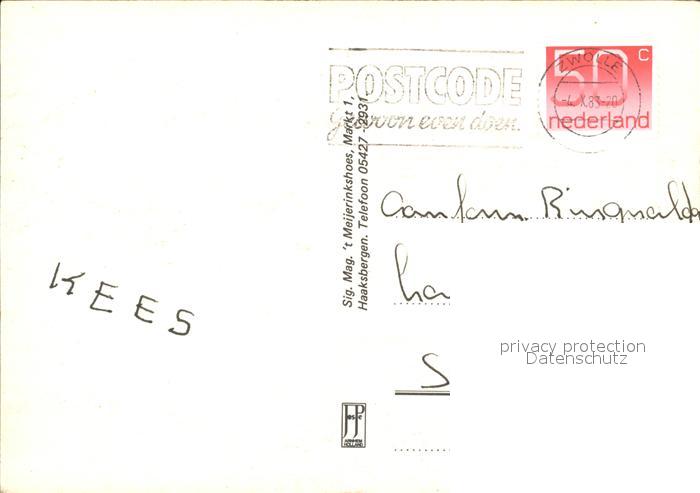 POSTCODE
gewoon even doen.
50 C
nederland
ZWOLLE
-4.X.83-20
Sig. Mag. 't Meijerinkshoes, Markt 1,
Haaksbergen. Telefoon 05427 - 2931
KEES
privacy protection
Datenschutz
JosPe
ARNHEM
HOLLAND